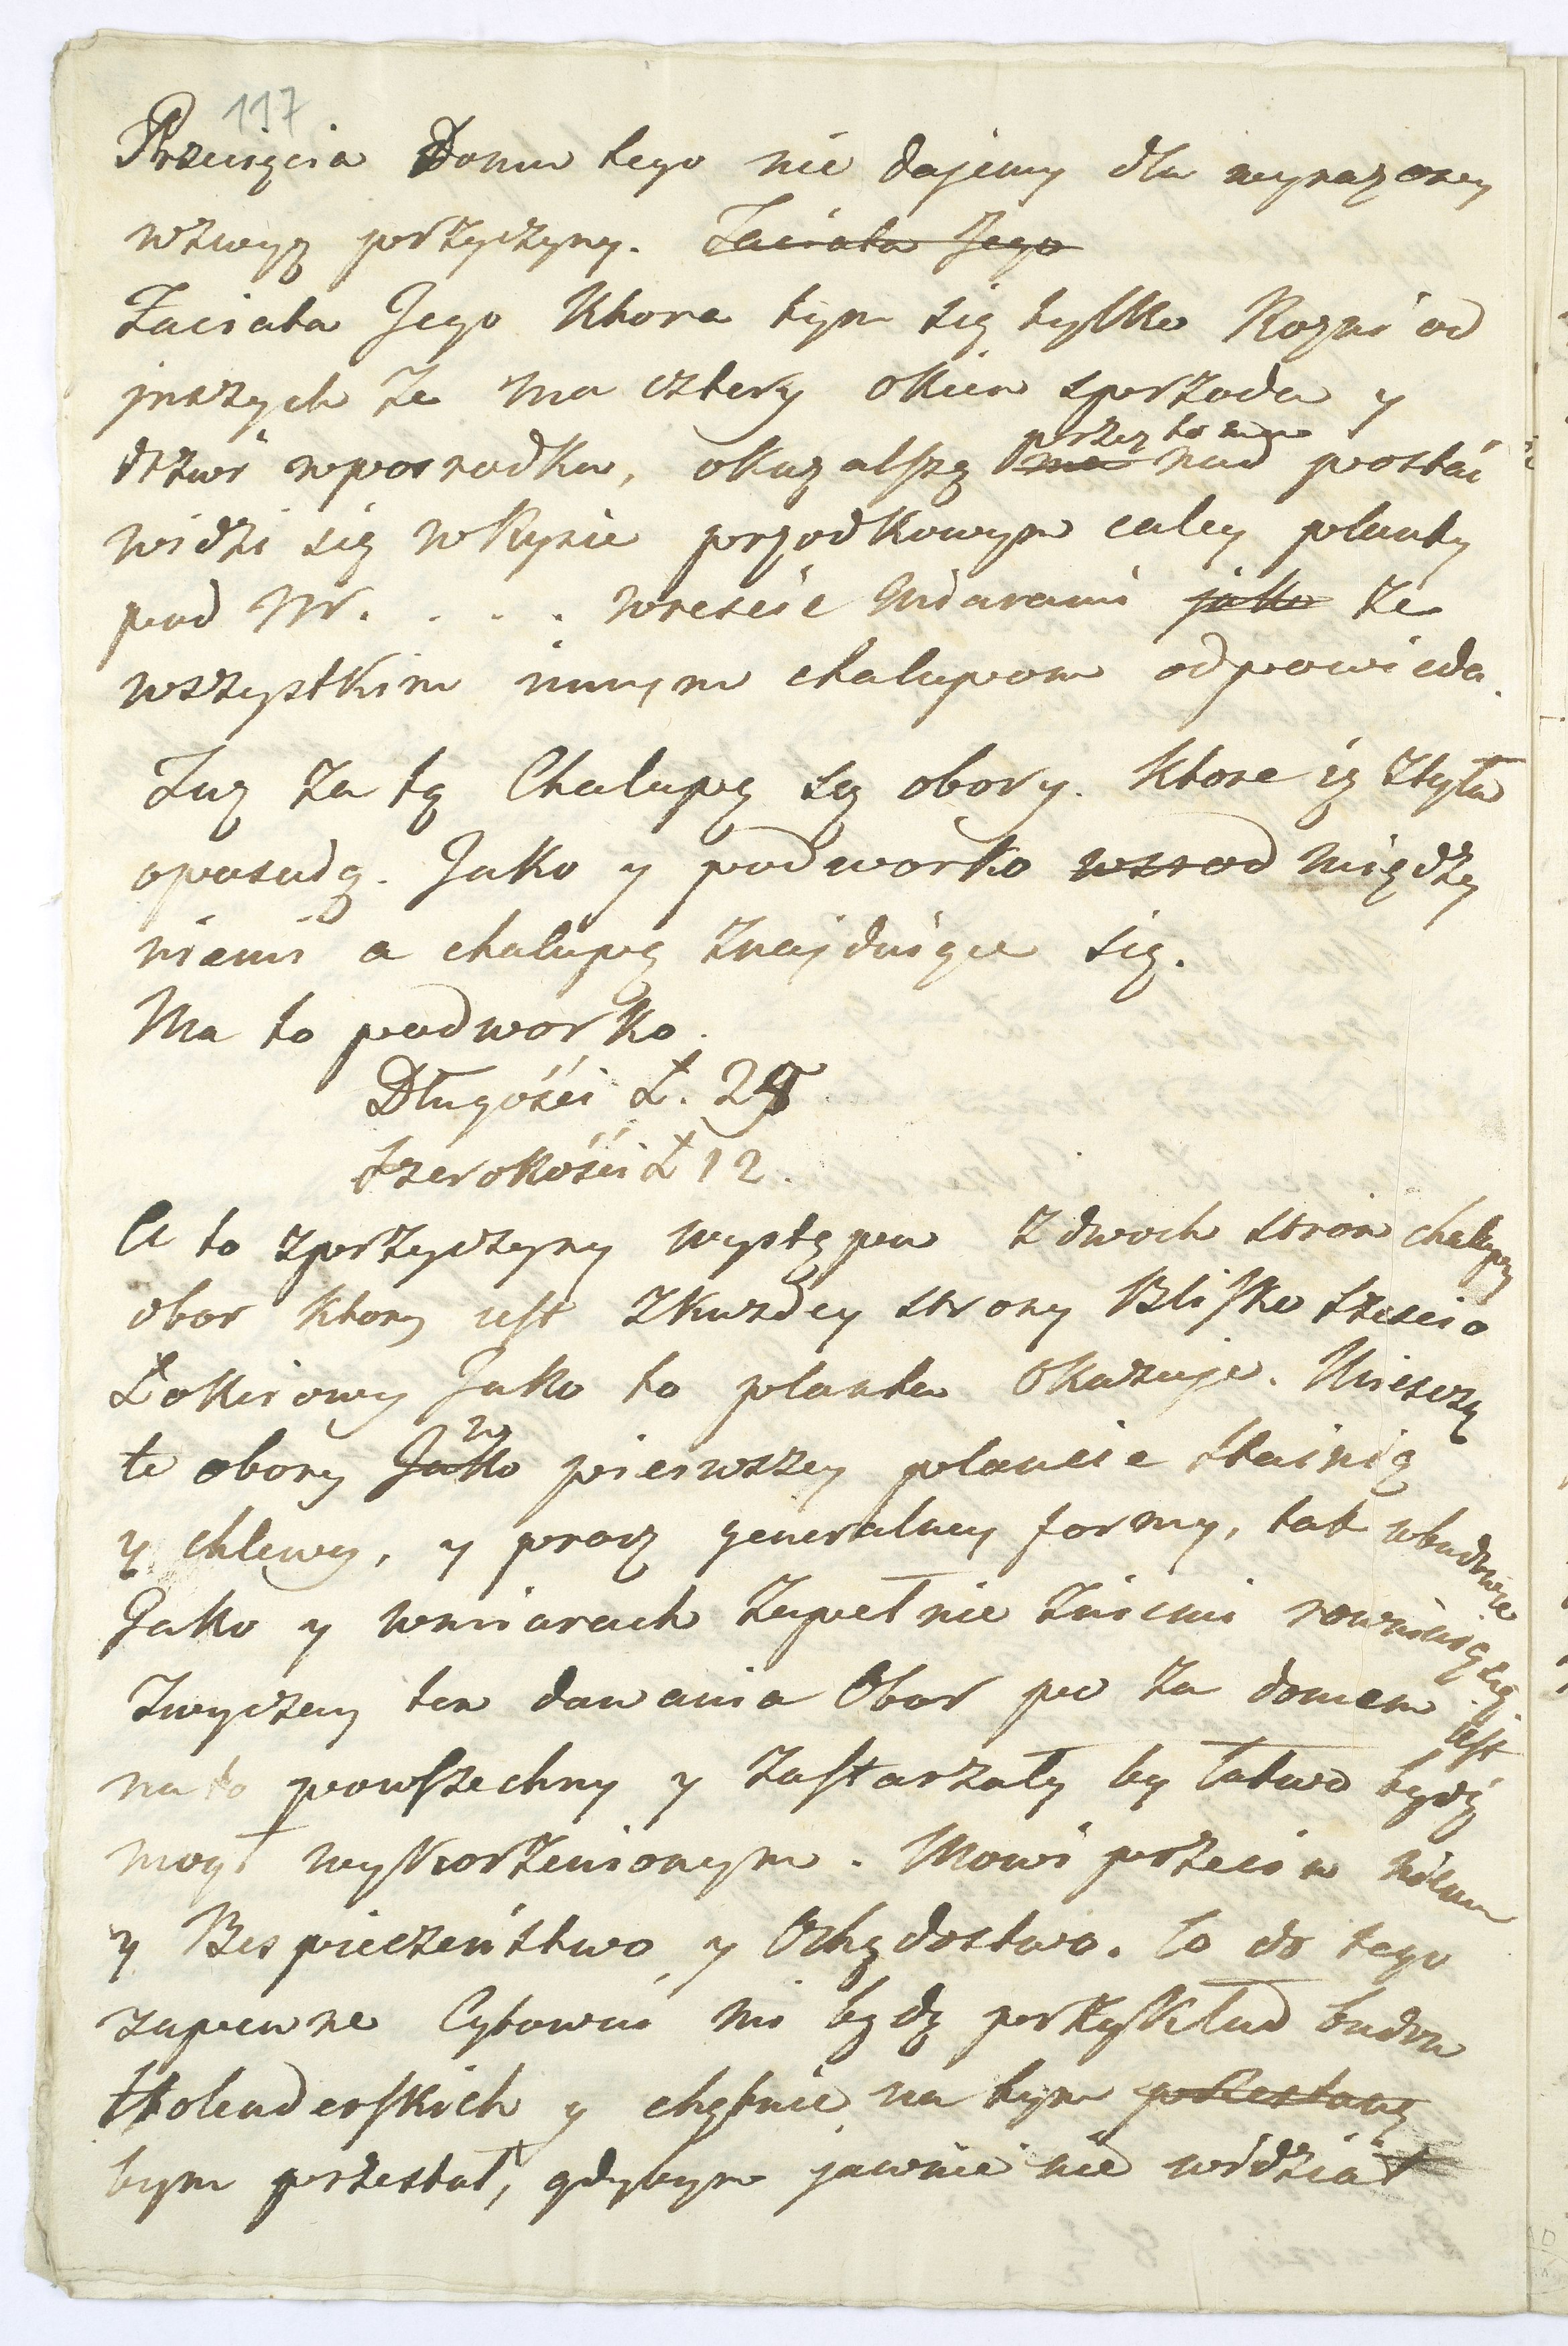 117
Przecięcia Domu tego nie dajemy dla wyrazoney
wzwyz przyczyny. Faciata Jego
Faciata Jego Ktora tym się tylko Rozni od
jnszych że ma cztery okien zprzodu y
drzwi wposrodku, okazalszą przez to ma nad postać
widzi się wRysie porzodkowym całey planty
pod Nr. . . . wreście Miarami jako że
wszystkim innym chalupom odpowieda.
Tuz za tą Chalupą są obory. Ktore ią ztyłu
opasują. Jako y podworko wsrod między
niemi a chalupą znajduiące się.
Ma to podworko.
Długości Ł. 28
Szerokości Ł 12.
A to zprzyczyny występu z dwoch stron chalupy
obor ktory iest zkazdey strony Blisko sześcio
Łokciowy Jako to planta Okazuje. Mieszczą
te obory Jako w pierwszey plancie stainią
y chlewy, y procz generalney formy, tak wbudowie
Jako y wmiarach zupełnie zniemi rownaią się.
Zwyczay ten dawania Obor po za domem iest
nato powszechny y zastarzały by łatwo bydź
mogł wyskorzenionym. Mowi przeciw niemu
y Bespieczeństwo y Ochędostwo. Co do tego
zapewne Cytować mi będą przykład budow
Holenderskich y chętnie na tym przestaną
bym przestał, gdybym jawnie nie widział